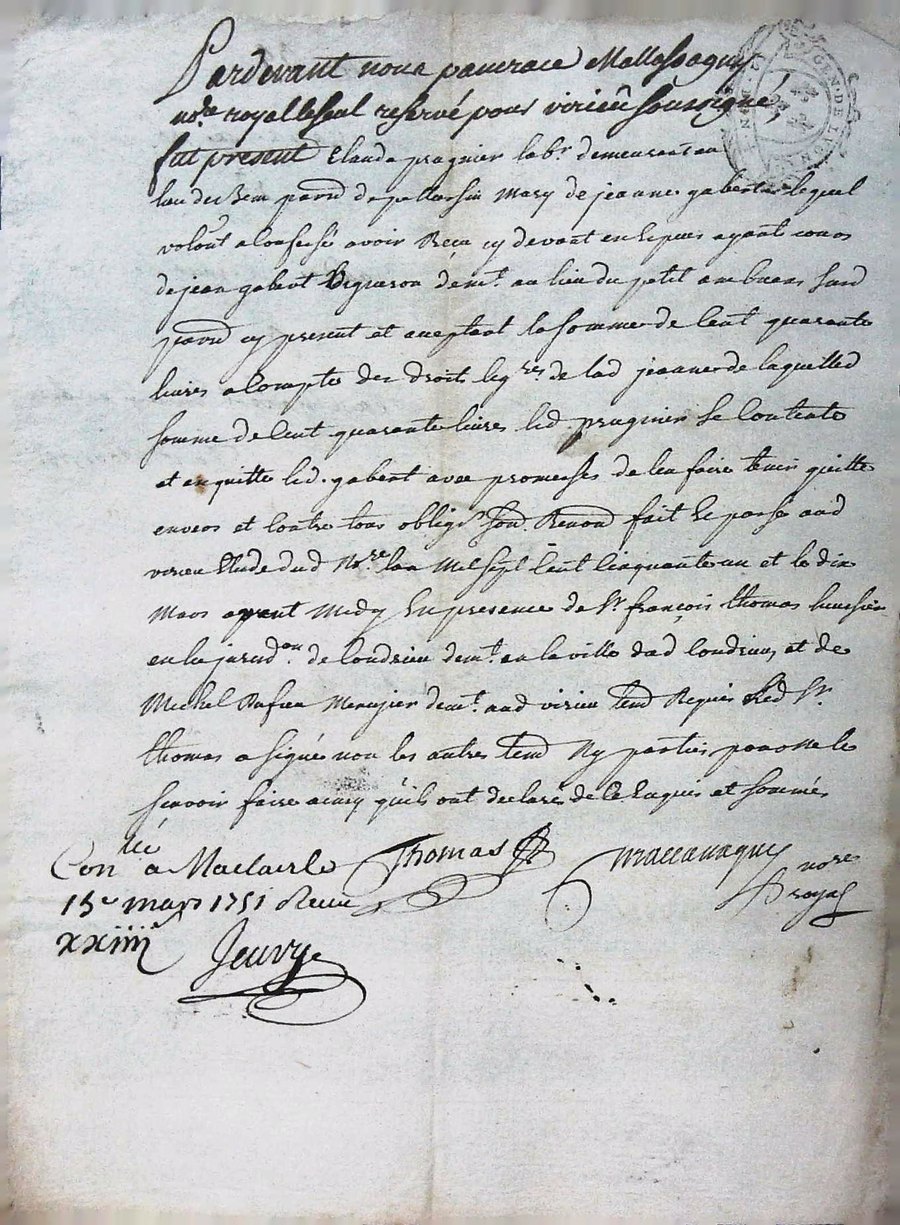 Pardevant nous pancrace
no.re royal le seul reservé pour virieu soussigné
fut present Claude prugnier lab.r demeurant au
lieu du parr.d de pellussin Mary de jeanne gabert lequel
volont a Confessé avoir Reçu cy devant en Especes ayant cours
de jean gabert vigneron dem.t au lieu du petit susd
parrd cy present et aceptant la somme de Cent quarante
livres a Compte des droits leg.res de lad jeanne de laquelled
somme de Cent quarante livres led. prugnier se Contente
et en quitte led. gabert avec promesses de l'en faire tenir quitte
envers et Contre tous oblig.s Renond fait Et passé aud
virieu Etude dud No.re l'an Mil sept Cent Cinquante un et le dix
Mars avant Midy En presence de Sr. françois thomas huissier
en la jurisd.on de Condrieu dem.t en la ville dud Condrieu, et de
Michel Menuzier dem.t aud virieu tem.d Requis Led Sr.
thomas a signé non les autres tem.d Ny parties pour ne le
sçavoir faire ainsy qu'ils ont declaré de ce Enquis et sommés
Con.llé a Maclas le Thomas
no.re
15e mars 1751 Reçu royal
xxiiii s
Jeuvy